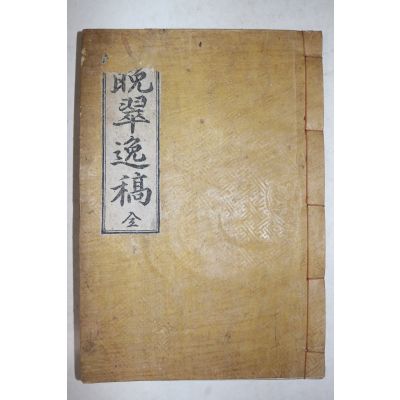 晩翠逸稿 全